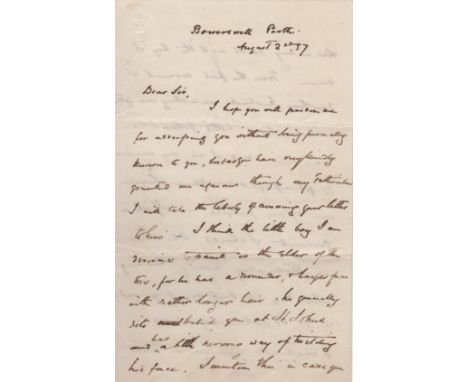 Bowerswell Perth
August 2nd 57
Dear Sir,
I hope you will pardon me
for accepting you without being personally
known to you, but as you have very kindly
granted me through my Father in law
I will take the liberty of answering your letter
to him - I think the little boy I am
desirous to paint is the elder of the
two, for he has a rounder, & larger face
with rather longer hair. he generally
sits behind you at St. Johns
and has a little nervous way of twitching
his face. I mention this in case you